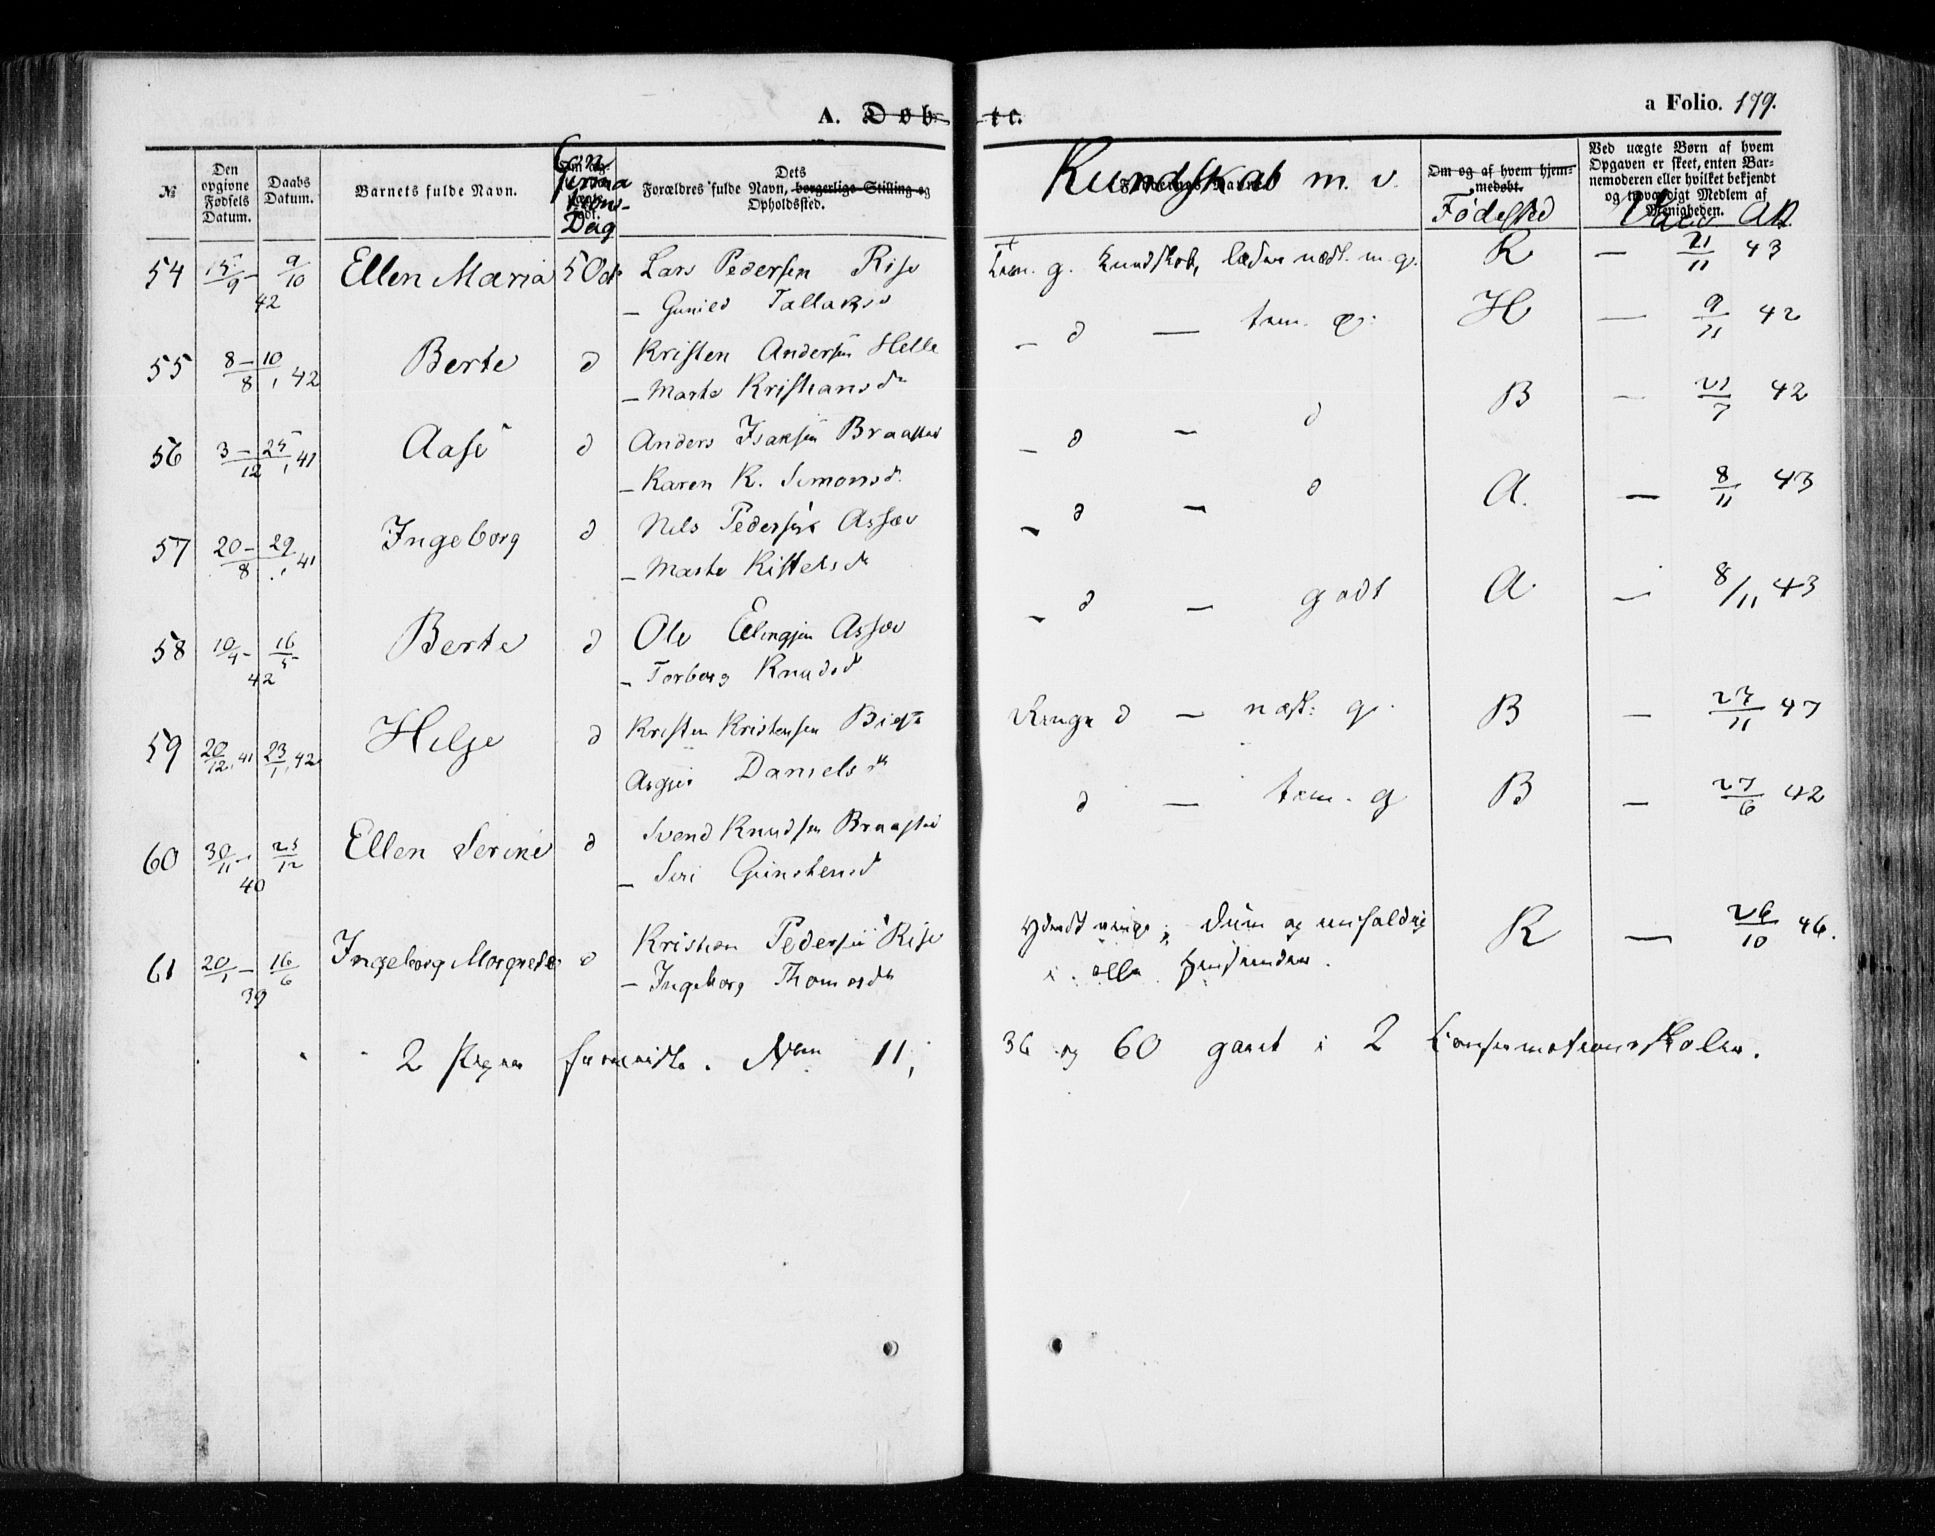 A. Døbte.
a Folio. 179.
№
Den opgivne Fødsels Datum.
Daabs Datum.
Barnets fulde Navn.
Confirmations-Dag
Dets Forældres fulde Navn, borgerlige Stilling og Opholdssted.
Kundskab m. v.
Om og af hvem hjemmedøbt.
Fødested
Ved uægte Børn af hvem Opgaven er skeet, enten Barnemoderen eller hvilket bekjendt og troværdigt Medlem af Menigheden.
54 15/9 - 9/10 42 Ellen Maria 5 Oct Lars Pedersen Rise
- Gunild Tallaksd
Tem. g. Kundskab, læder nœst. m. g. R — 21/11 43
55 8-10/8, 42 Berte d Kristen Andersen Helle
- Marte Kristiansd
- d — tem. g. H — 9/11 42
56 3-25/12, 41 Aase d Anders Isaksen Braastad
- Karen K. Simonsd.
- d - d B — 21/7 42
57 20-29/8, 41 Ingeborg d Nils Pedersen Assæv
- Marte Kittelsd
- d - d A. — 8/11 43
58 10/4 - 16/5 42 Berte d Ole Ellingsen Assæv
- Torborg Knudsd
- d - godt A — 8/11 43
59 20/12, 41 23/1, 42 Helje d Kristen Kristensen
Asgjer Danielsd
Ringe d — næst: g. B — 27/11 47
60 30/11 - 25/12 40 Ellen Serine d Svend Knudsen Braastad
- Siri Gunstensd
d — tem. g B — 27/6 42
61 20/1 - 16/6 39 Ingeborg Margrete d Kristian Pedersen Rise
- Ingeborg Thomasd
ringe; dum og
i alle Henseender. R — 26/10 46.
2 Piger N 11, 36 og 60 gaaet i 2 Confirmationsskoler.